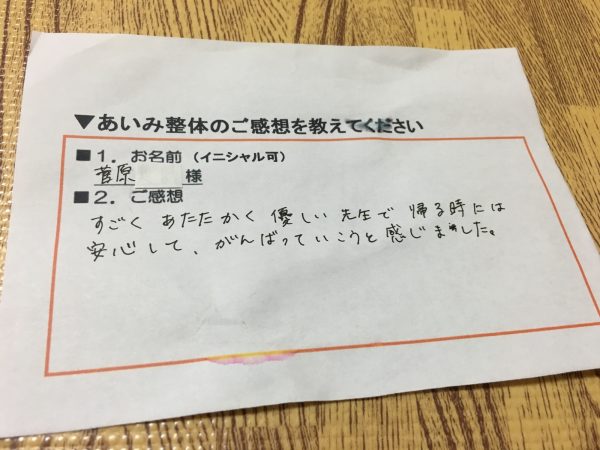 ▼あいみ整体のご感想を教えてください
■1．お名前（イニシャル可）
菅原 様
■2．ご感想
すごく あたたかく 優しい 先生で 帰る時には
安心して、がんばっていこうと 感じました。